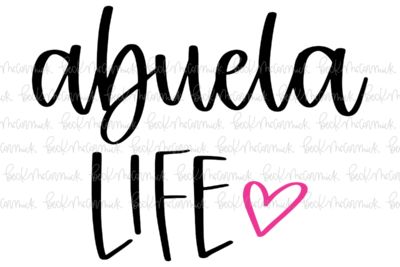 abuela
LIFE